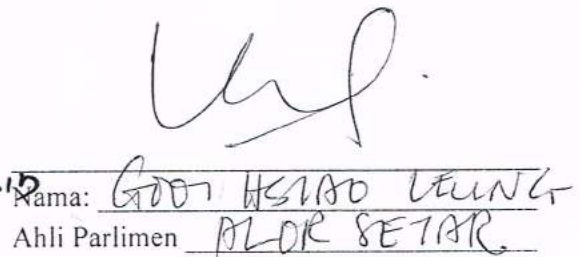 Nama: GOOI HSIAO LEUNG
Ahli Parlimen ALOR SETAR.